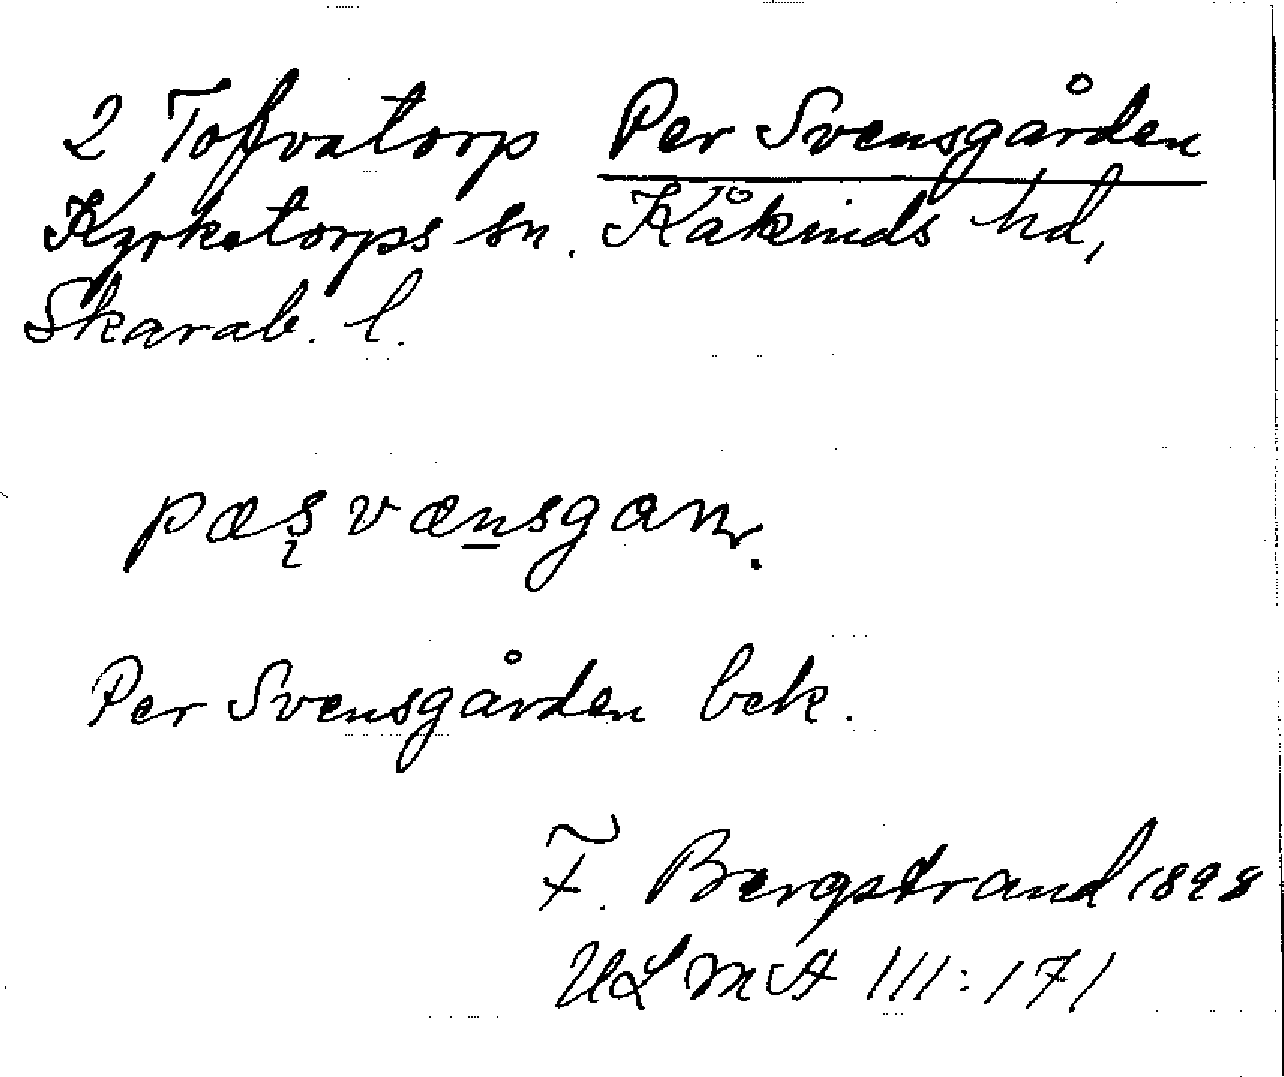 2 Toffvatorp Per Svensgården
Kyrketorps sn. Kåkinds hd,
Skarab. l.
pæs̨ væn̲sgan.
Per Svensgården bek.
F. Bergstrand 1898
ULMA 111:171